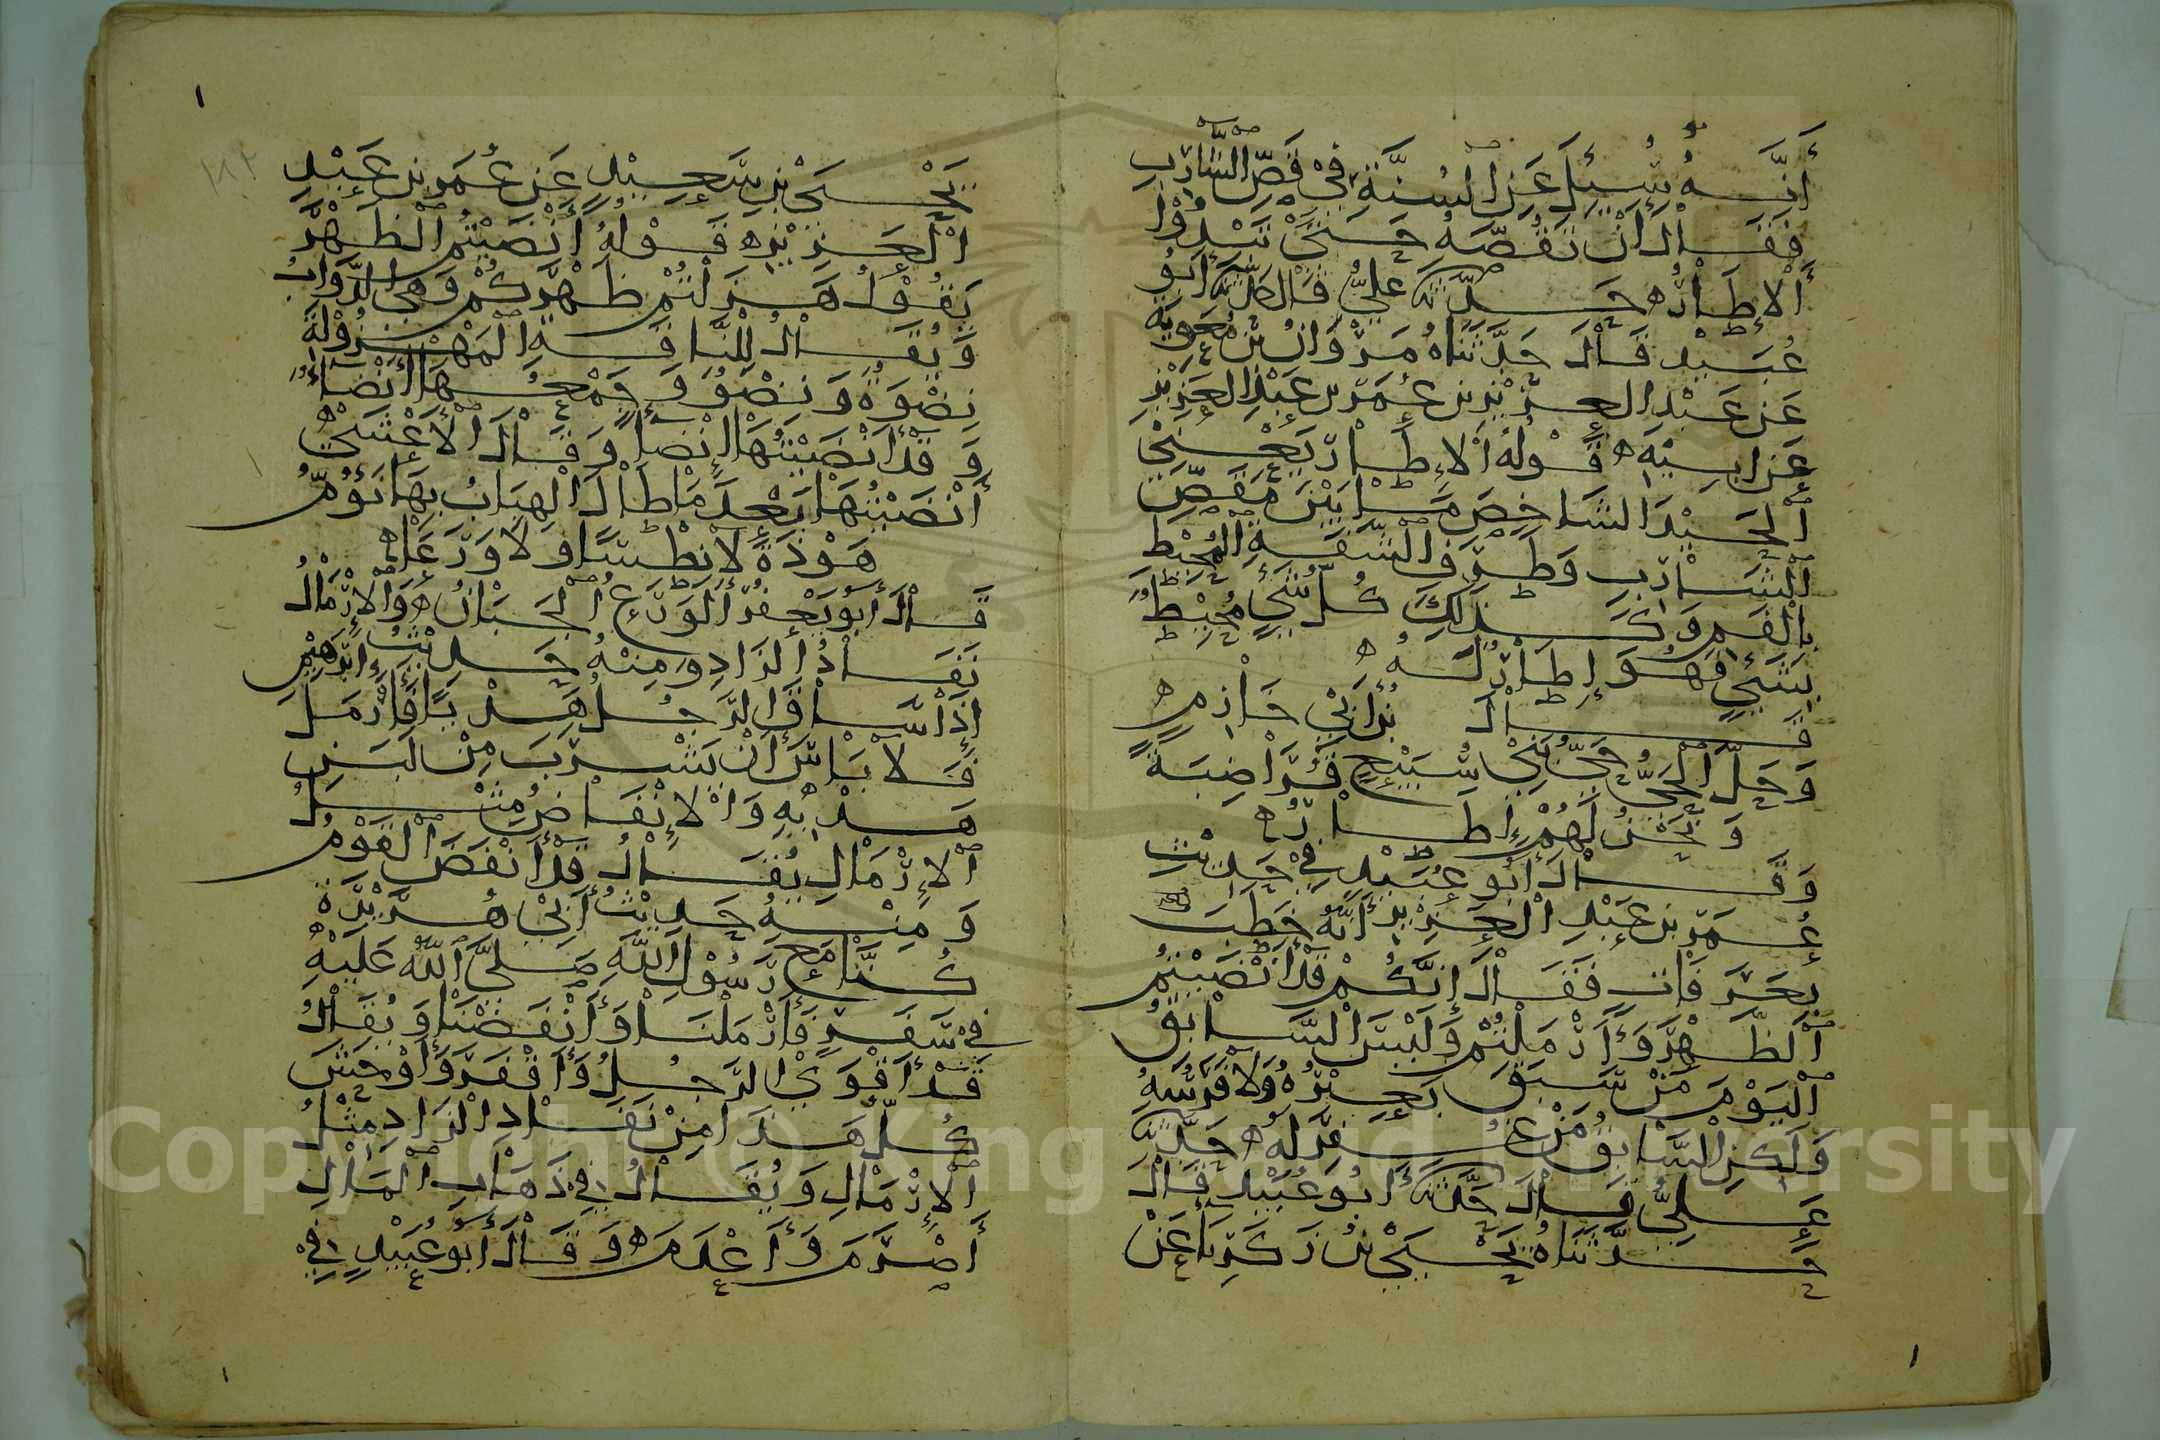 أَنَّهُ سُئِلَ عَنِ السُنَّةِ فِي قَصِّ الشَّارِبِ
فَقَالَ أَنْ تَقُصَّهُ حَتَّى يَبْدُوَا
الْإِطَارُ ه حَدَّثَنَا عَلِيٌّ قَالَ حَدَّثَنَا أَبُو
عُبَيْد قَالَ حَدَّثَنَاهُ مَرْوَانُ بْنُ مُعَوِيَةَ
عَن عَبْدِ العَزِيْزِ بنِ عُمَرَ بنِ عَبْدِ العَزِيْزِ
عَن ابِيْهِ ه قَوْلُهُ الْإِطَارُ يَعْنِيْ
الْحَيْدَ الشَاخِصَ مَا بَيْنَ مَقَصِّ
الْشَارِبِ وَطَرَفِ الْشَفَةِ الْمُحِيْطِ
بِالْفَمِ وَكَذَلِكَ كُلُّ شَيْءٍ مُحِيْطٌ
بِشَيْءٍ فَهُوَ إِطَارٌ لَهُ ه
قَالَ بْنُ أَبِيْ خَازِمٍ ه
وَحَلَّ الْحَيُّ حَيُّ بَنِيْ سُبَيْعٍ قُرَاضِبَةً
وَنَحْنُ لَهُمْ إِطَارُ ه
وَقَالَ أَبُو عُبَيْد فِيْ حَدِيْثِ
عُمَرَ بنِ عَبْدِ الْعَزِيْزِ أَنَّهُ خَطَبَ
بِعَرَفَاتٍ فَقَالَ إِنَّكُمْ قَدْ أَنْضَيْتُمُ
الْظَّهْرَ وَأَرْمَلْتُمْ وَلَيْسَ الْسَّابِقُ
الْيَوْمَ مَنْ سَبَقَ بَعِيْرُهُ وَلَا فَرَسُهُ
وَلَكِنِ الْسَّابِقُ مَنْ غُفِرَ لَهُ ه حَدَّثَنَا
عَلِيُّ قَالَ حَدَّثَنَا أَبُو عُبَيْد قَالَ
حَدَّثَنَاهُ يَحْيَىْ بْنُ زَكَرِيَّا عَنْ
١
١
١٨٢
يَحْيَىْ بْنِ سَعِيْدٍ عَن عُمَرَ بنِ عَبْدِ
الْعَزِيْزِ ه قَوْلُهُ أَنْضَيْتُم الْظَهْرَ
يَقُوْلُ هَزَلْتُمْ ظَهْرَكُمْ وَهِيَ الدَّوَابُ
وَيُقَالُ لِلْنَّاقَةِ الْمَهْزُوْلَةِ
نِضْوَةٌ وَنِضْوٌ وَجَمْعُهَا أَنْضَاءٌ
وَقَدْ أَنْضَيْتُهَا إِنْضَاءً وَقَالَ الْأَعْشَىْ ه
أَنْضَيْتُهَا بَعْدَ مَا طَالَ الْهِبَابُ بِهَا تَؤُمُّ
هَوْذَةَ لَا نِكْسًا وَلَا وَرَعَا ه
قَالَ أَبُو جَعْفَرٍ الْوَرَعُ الْجَبَانُ ه وَالْإِرْمَالُ
نَفَادُ الزَادِ وَمِنْهُ حَدِيْثُ إِبْرَهِيْمَ
إِذَا سَاقَ الرَّجُلُ هَدْيًا فَأَرْمَلَ
فَلَا بَأْسَ أَنْ يَشْرَبَ مِنْ لَبَنِ
هَدْيِهِ وَالْإِنْفَاضُ مِثْلُ
الْإِرْمَالِ يُقَالُ قَدْ أَنْفَضَ الْقَوْمُ
وَمِنْهُ حَدِيْثُ أَبِيْ هُرَيْرَةَ
كُنَّا مَعَ رَسُوْلِ اللَّهِ صَلَّى اللَّهُ عَلَيْهِ
فِيْ سَفَرٍ فَأَرْمَلْنَا وَأَنْفَضْنَا وَيُقَالُ
قَدْ أَقْوَى الرَّجُلُ وَأَقْفَرَ وَأَوْحَشَ
كُلُّ هَذَا مِنْ نَفَادِ الْزَادِ مِثْلُ
الْإِرْمَالِ وَيُقَالُ فِيْ ذَهَابِ الْمَالِ
أَصْرَمَ وَأَعْدَمَ ه وَقَالَ أَبُو عُبَيْدٍ فِيْ
١
Copyright © King Saud University